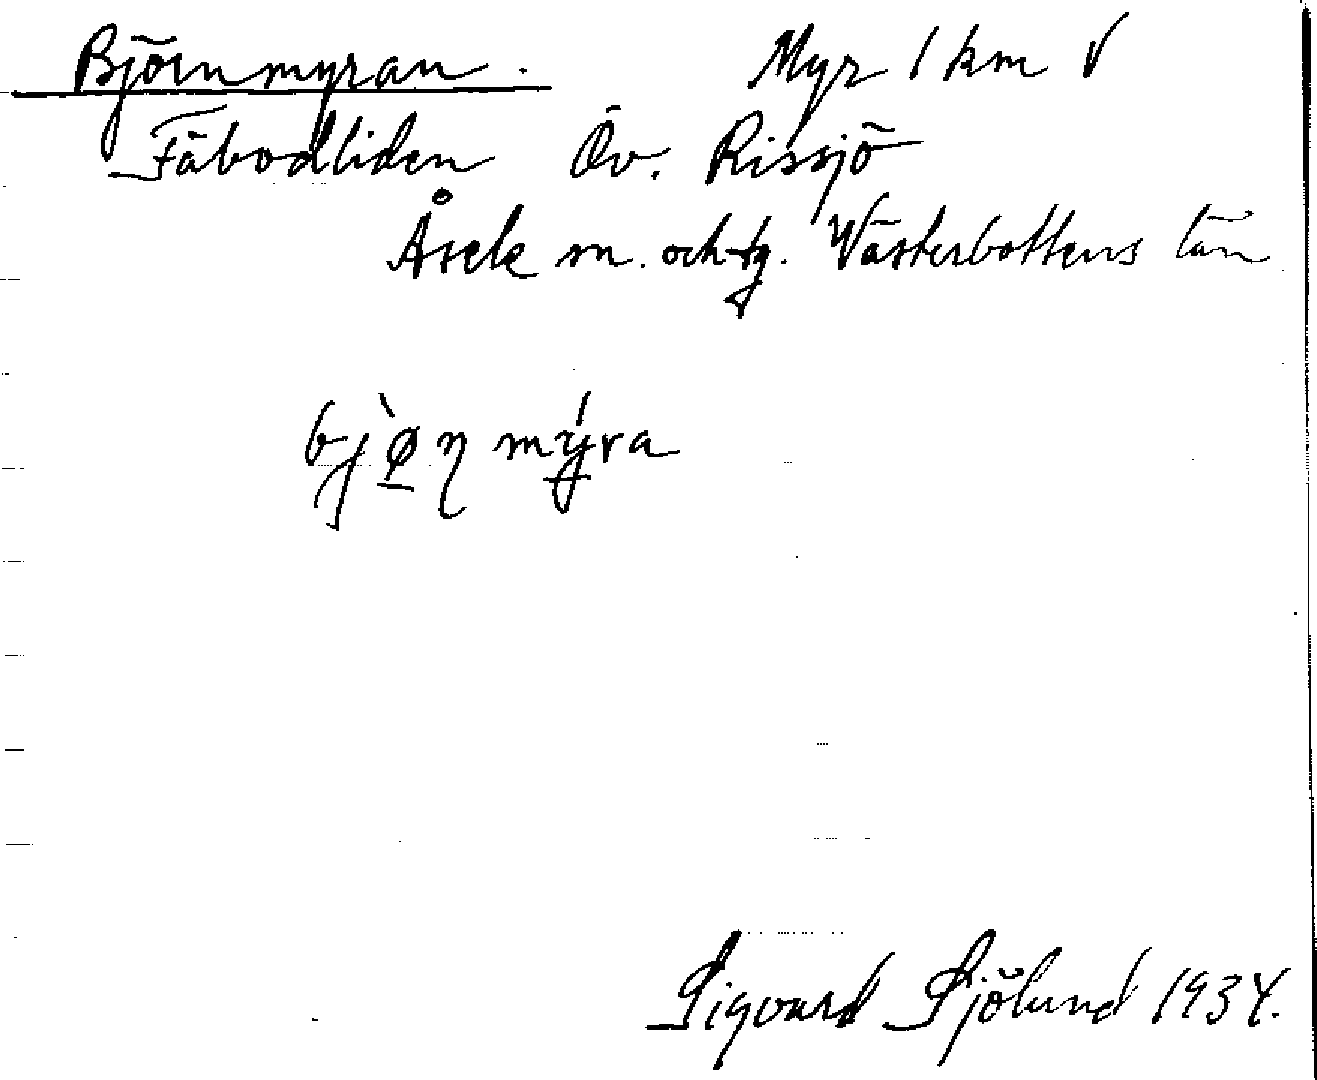 Björnmyran. Myr 1 km V
Fäbodliden Öv. Rissjö
Åsele sn. och tg. Västerbottens län
bjø̀ɳmýra
Sigvard Sjölund 1934.